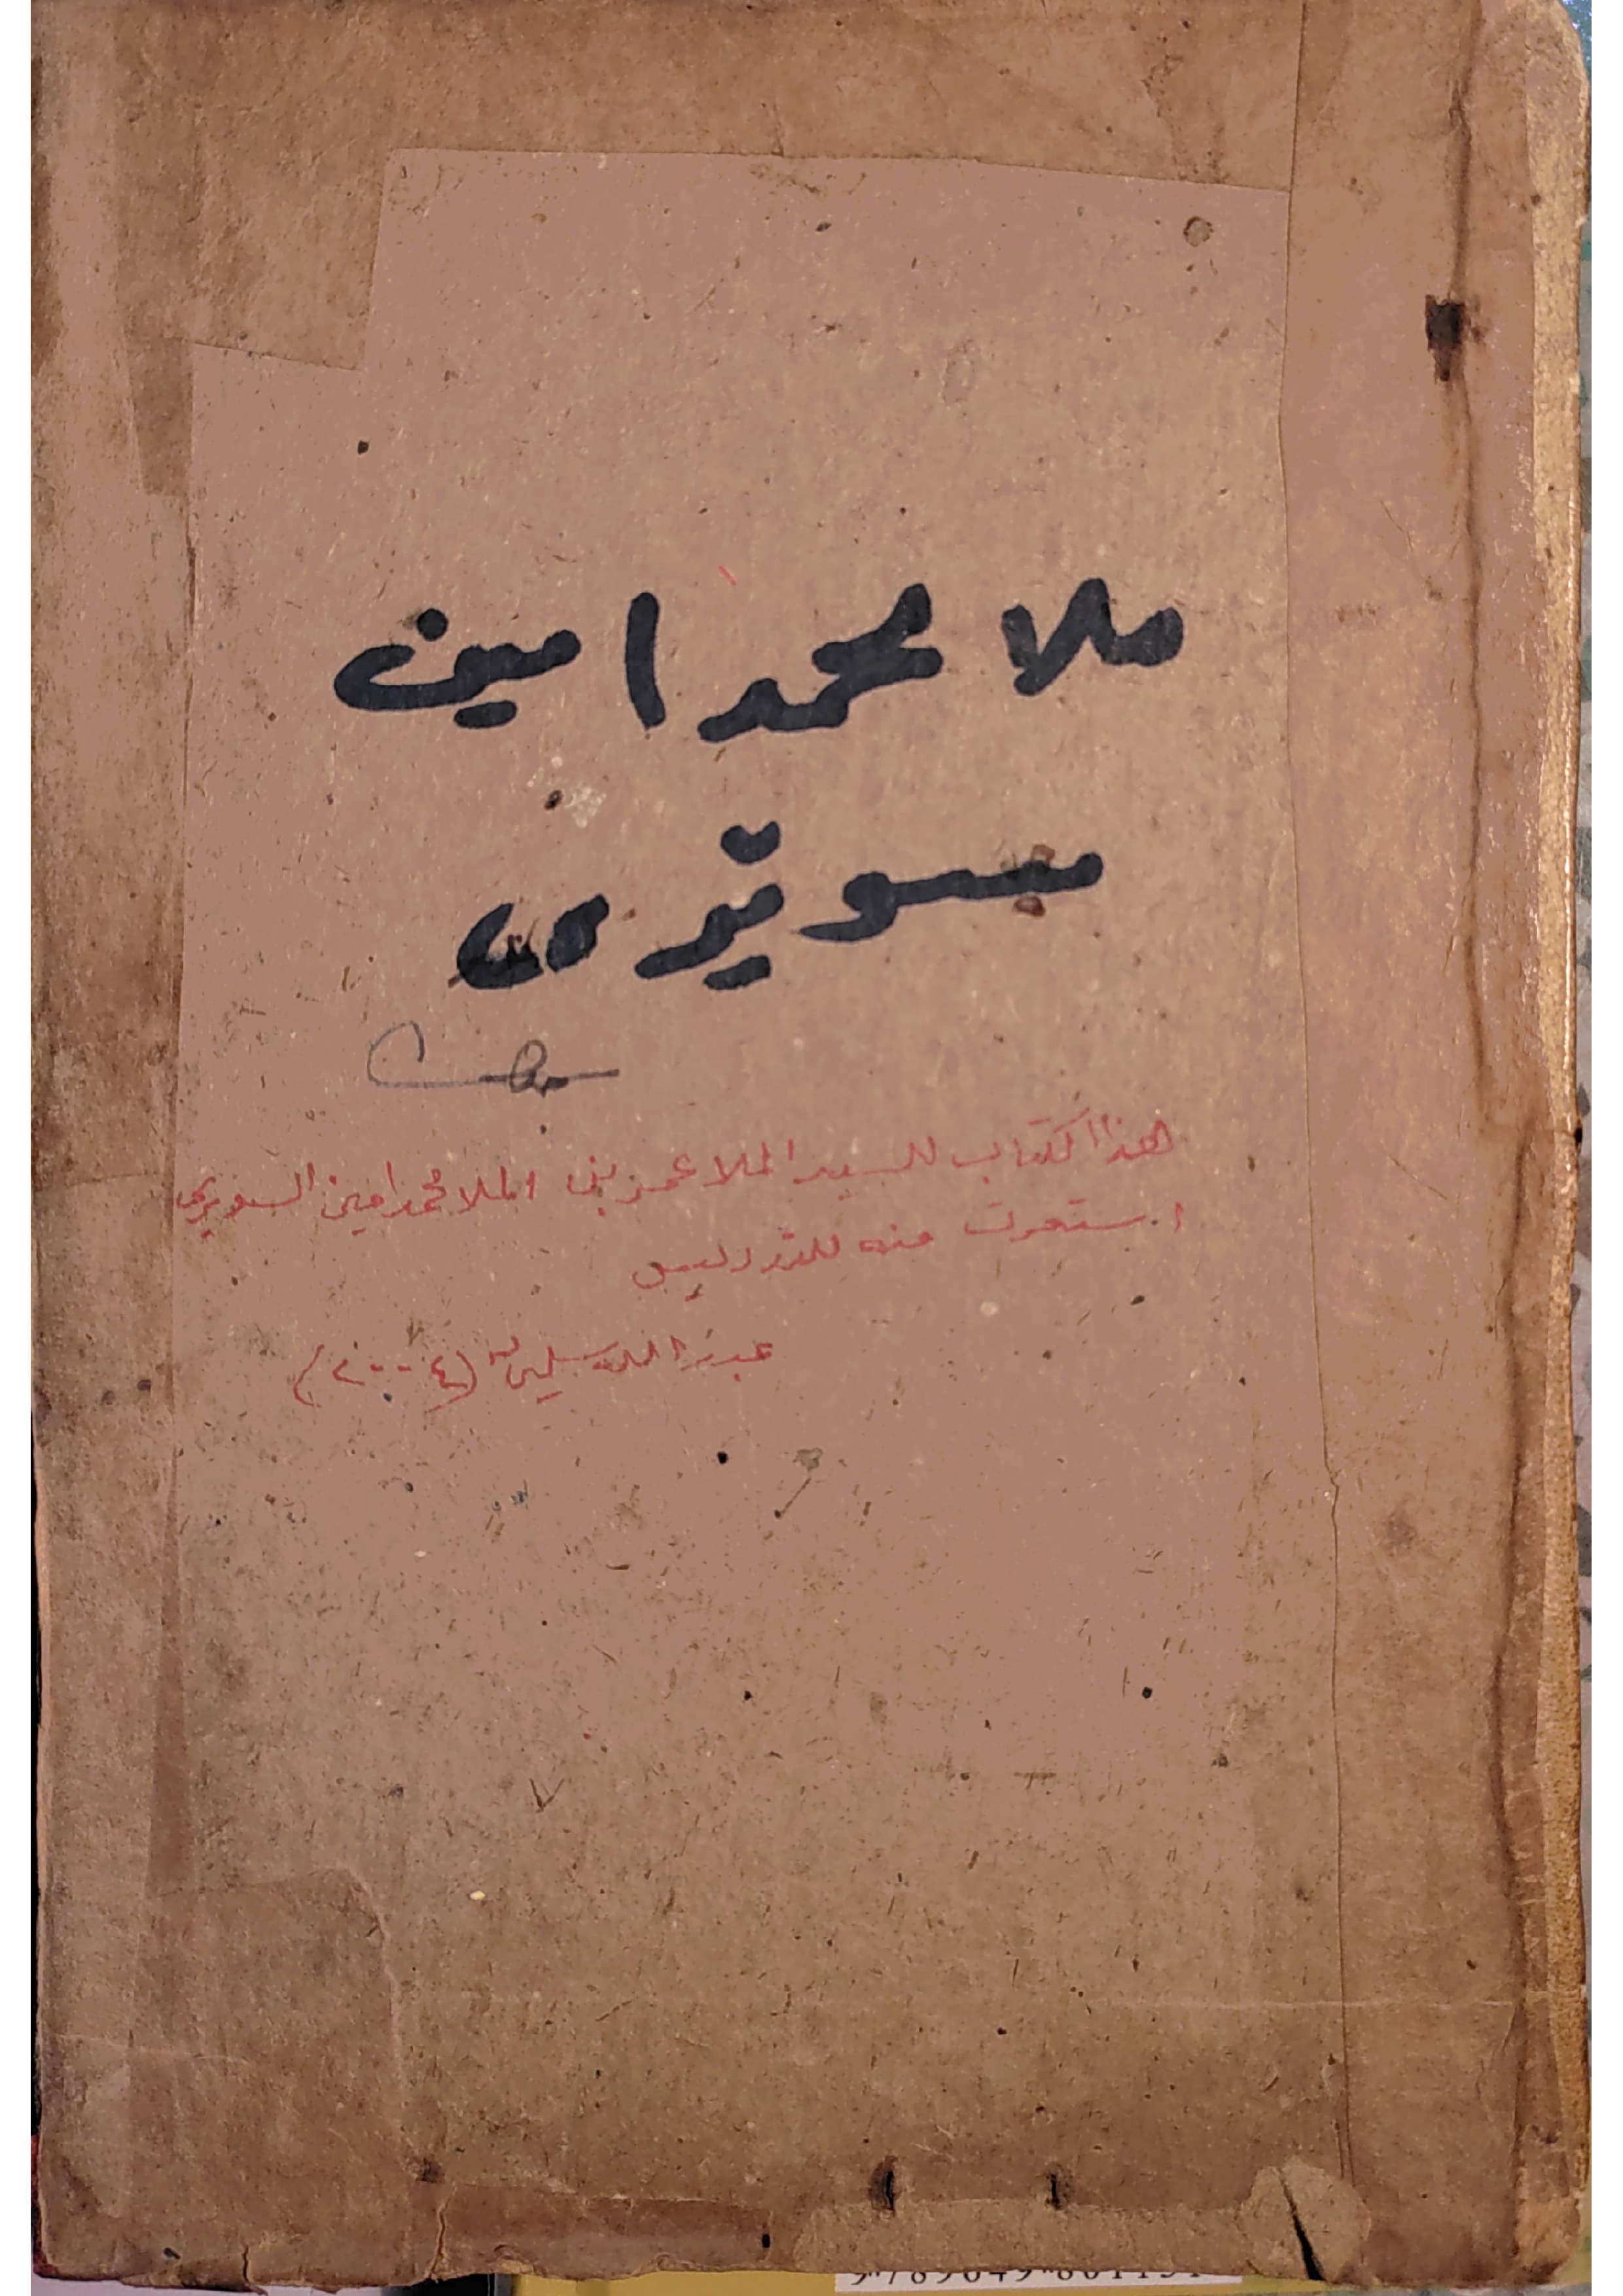 ملا محمد امين
سويرى
هذا الكتاب للسيد الملا عمر بن الملا محمد امين السويري
استعرت منه للتدريس
عبد الله سليمان (٢٠٠٤)